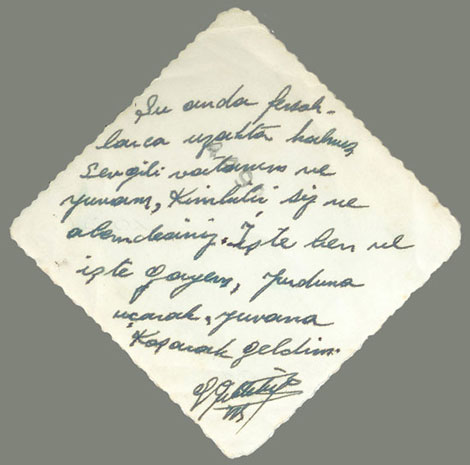 Şu anda fersah-
larca uzakta kalmış
Sevgili vatanım ve
yuvam,
alemdesiniz. İşte ben ve
işte gayem, yurduna
uçarak, yuvana
Koşarak geldim.